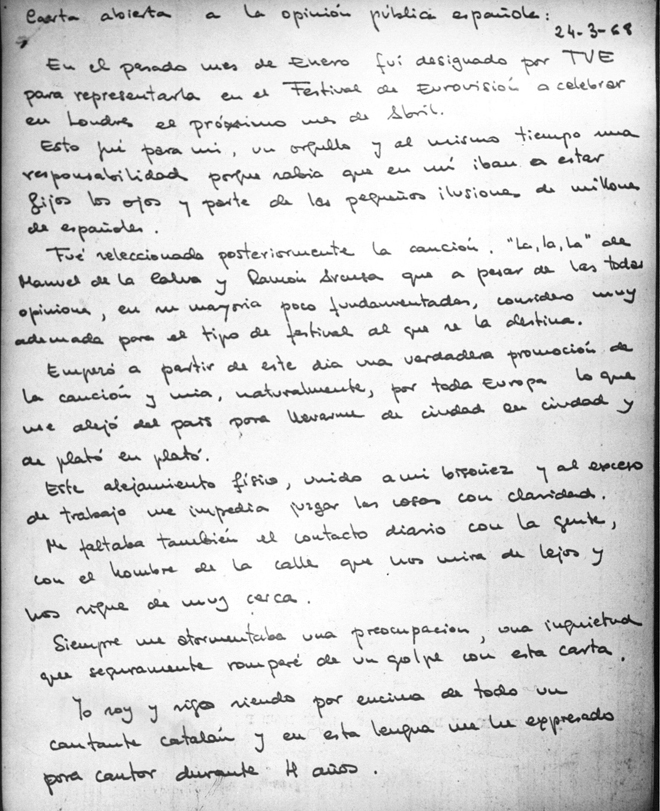 Carta abierta a la opinión pública española:
24-3-68
En el pasado mes de Enero fuí designado por TVE
para representarla en el Festival de Eurovisión a celebrar
en Londres el próximo mes de Abril.
Esto fué para mi, un orgullo y al mismo tiempo una
responsabilidad porque sabia que en mí iban a estar
fijos los ojos y parte de las pequeñas ilusiones de millones
de españoles.
Fué seleccionada posteriormente la canción, "La, la, la" de
Manuel de la Calva y Ramón Arcusa que a pesar de las todas
opiniones, en su mayoria poco fundamentadas, considero muy
adecuada para el tipo de festival al que se la destina.
Empezó a partir de este dia una verdadera promoción de
la canción y mia, naturalmente, por toda Europa lo que
me alejó del pais para llevarme de ciudad en ciudad y
de plató en plató.
Este alejamiento físico, unido a mi bisoñez y al exceso
de trabajo me impedia juzgar las cosas con claridad.
Me faltaba también el contacto diario con la gente,
con el hombre de la calle que nos mira de lejos y
nos sigue de muy cerca.
Siempre me atormentaba una preocupacion, una inquietud
que seguramente romperé de un golpe con esta carta.
Yo soy y sigo siendo por encima de todo un
cantante catalán y en esta lengua me he expresado
para cantar durante 4 años.